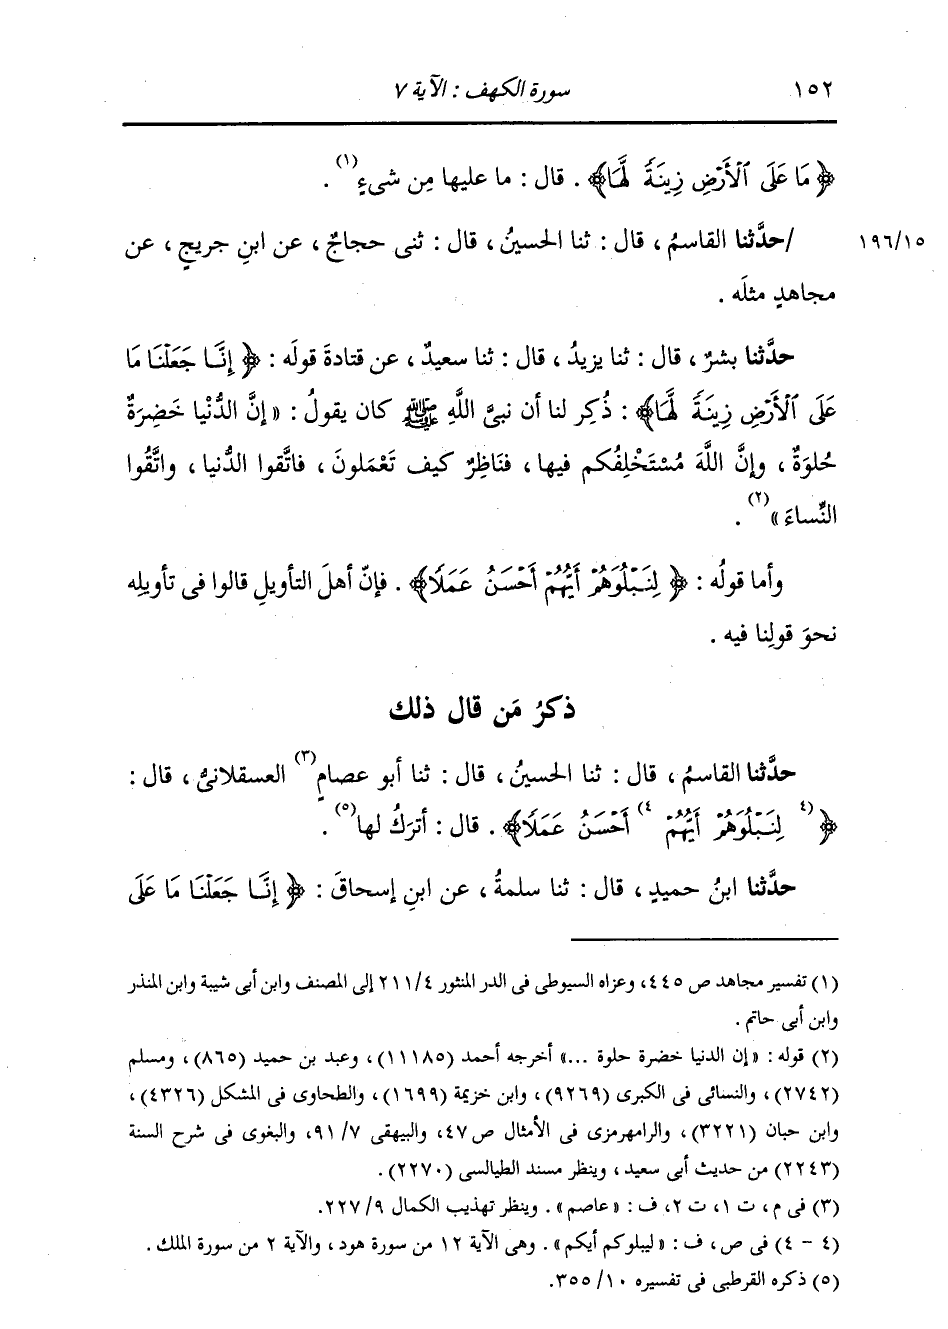 ١٥٢ سورة الكهف : الآية ٧
﴿ مَا عَلَى ٱلْأَرْضِ زِينَةً لَّهَا﴾ . قال : ما عليها مِن شىءٍ(١) .
١٩٦/١٥ /حدَّثنا القاسمُ ، قال : ثنا الحسينُ ، قال : ثنى حجاجٌ ، عن ابنِ جريجٍ ، عن
مجاهدٍ مثلَه .
حدَّثنا بشرٌ ، قال : ثنا يزيدُ ، قال : ثنا سعيدٌ ، عن قتادةَ قولَه : ﴿ إِنَّا جَعَلْنَا مَا
عَلَى ٱلْأَرْضِ زِينَةً لَّهَا﴾ : ذُكِر لنا أن نبىَّ اللَّهِ ﷺ كان يقولُ : « إنَّ الدُّنْيا خَضِرَةٌ
حُلوَةٌ ، وإنَّ اللَّهَ مُسْتَخْلِفُكم فيها ، فنَاظِرٌ كيف تَعْمَلونَ ، فاتَّقوا الدُّنيا ، واتَّقُوا
النِّساءَ »(٢) .
وأما قولُه : ﴿ لِنَبْلُوَهُمْ أَيُّهُمْ أَحْسَنُ عَمَلًا﴾ . فإنّ أهلَ التأويلِ قالوا فى تأويلِه
نحوَ قولِنا فيه .
ذكرُ مَن قال ذلك
حدَّثنا القاسمُ ، قال : ثنا الحسينُ ، قال : ثنا أبو عصامٍ(٣) العسقلانىُّ ، قال :
﴿ (٤ لِنَبْلُوَهُمْ أَيُّهُمْ ٤) أَحْسَنُ عَمَلًا﴾ . قال : أتركُ لها(٥) .
حدَّثنا ابنُ حميدٍ ، قال : ثنا سلمةُ ، عن ابنِ إسحاقَ : ﴿ إِنَّا جَعَلْنَا مَا عَلَى
(١) تفسير مجاهد ص ٤٤٥، وعزاه السيوطى فى الدر المنثور ٢١١/٤ إلى المصنف وابن أبى شيبة وابن المنذر
وابن أبى حاتم .
(٢) قوله : « إن الدنيا خضرة حلوة ...» أخرجه أحمد (١١١٨٥) ، وعبد بن حميد (٨٦٥) ، ومسلم
(٢٧٤٢) ، والنسائى فى الكبرى (٩٢٦٩) ، وابن خزيمة (١٦٩٩) ، والطحاوى فى المشكل (٤٣٢٦) ،
وابن حبان (٣٢٢١) ، والرامهرمزى فى الأمثال ص ٤٧، والبيهقى ٧/ ٩١، والبغوى فى شرح السنة
(٢٢٤٣) من حديث أبى سعيد ، وينظر مسند الطيالسى (٢٢٧٠) .
(٣) فى م ، ت ١، ت ٢، ف : « عاصم » . وينظر تهذيب الكمال ٩/ ٢٢٧.
(٤ - ٤) فى ص ، ف : « ليبلوكم أيكم » . وهى الآية ١٢ من سورة هود ، والآية ٢ من سورة الملك .
(٥) ذكره القرطبى فى تفسيره ١٠/ ٣٥٥.